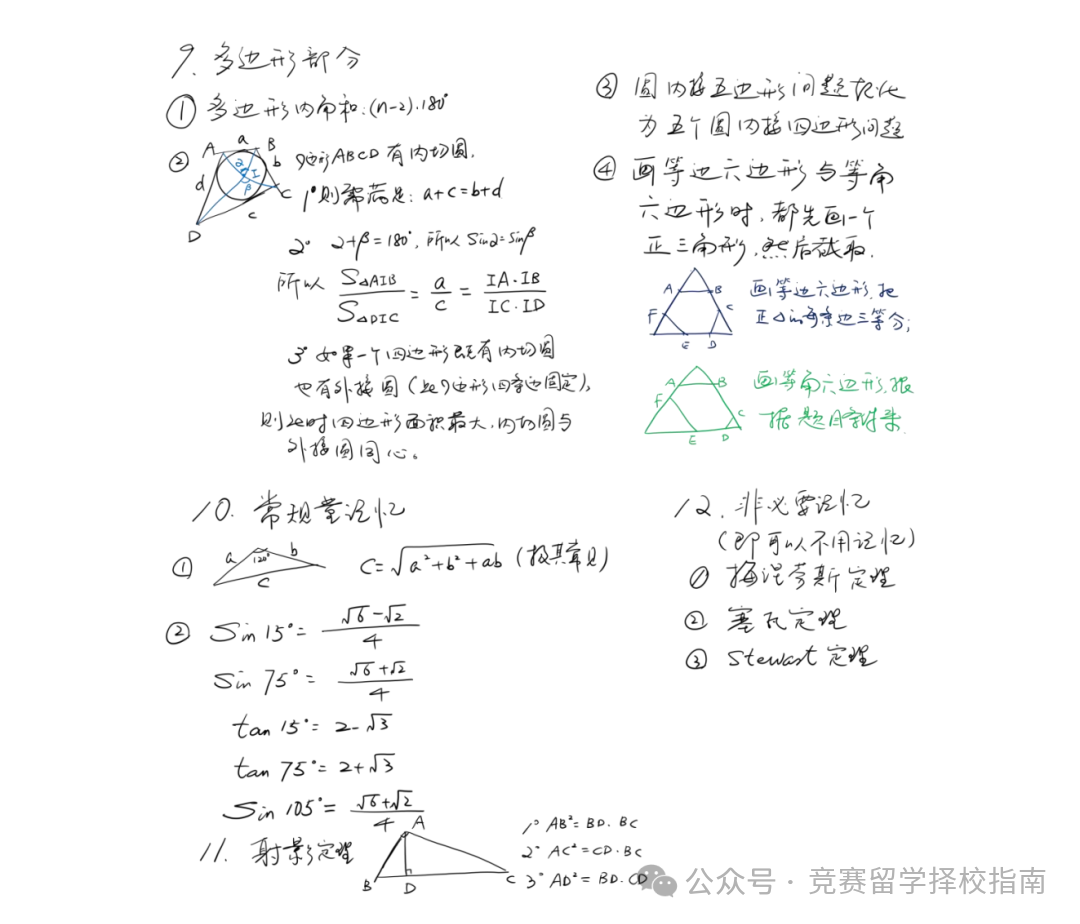 9. 多边形部分
① 多边形内角和:(n-2)·180°
② A a B b C c D d I 2 β
四边形ABCD有内切圆.
1° 则需满足: a+c=b+d
2° 2+β=180°, 所以 Sin2=Sinβ
所以 S△AIB / S△DIC = a/c = IA·IB / IC·ID
3° 如果一个四边形既有内切圆
也有外接圆(此四边形四条边固定),
则此时四边形面积最大,内切圆与
外接圆同心。
③ 圆内接五边形问题转化
为五个圆内接四边形问题
④ 画等边六边形与等角
六边形时,都先画一个
正三角形,然后截取.
A B C D E F
画等边六边形,把
正△的每条边三等分;
A B C D E F
画等角六边形,根
据题目条件来.
10. 常规堂记忆
① a b 120° c C=√(a²+b²+ab) (极其常见)
② Sin 15°= (√6-√2)/4
Sin 75°= (√6+√2)/4
tan 15°= 2-√3
tan 75°= 2+√3
Sin 105°= (√6+√2)/4
11. 射影定理
A B D C
1° AB²=BD·BC
2° AC²=CD·BC
3° AD²=BD·CD
12. 非必要记忆
(即可以不用记忆)
① 梅涅劳斯定理
② 塞瓦定理
③ Stewart定理
公众号·竞赛留学择校指南